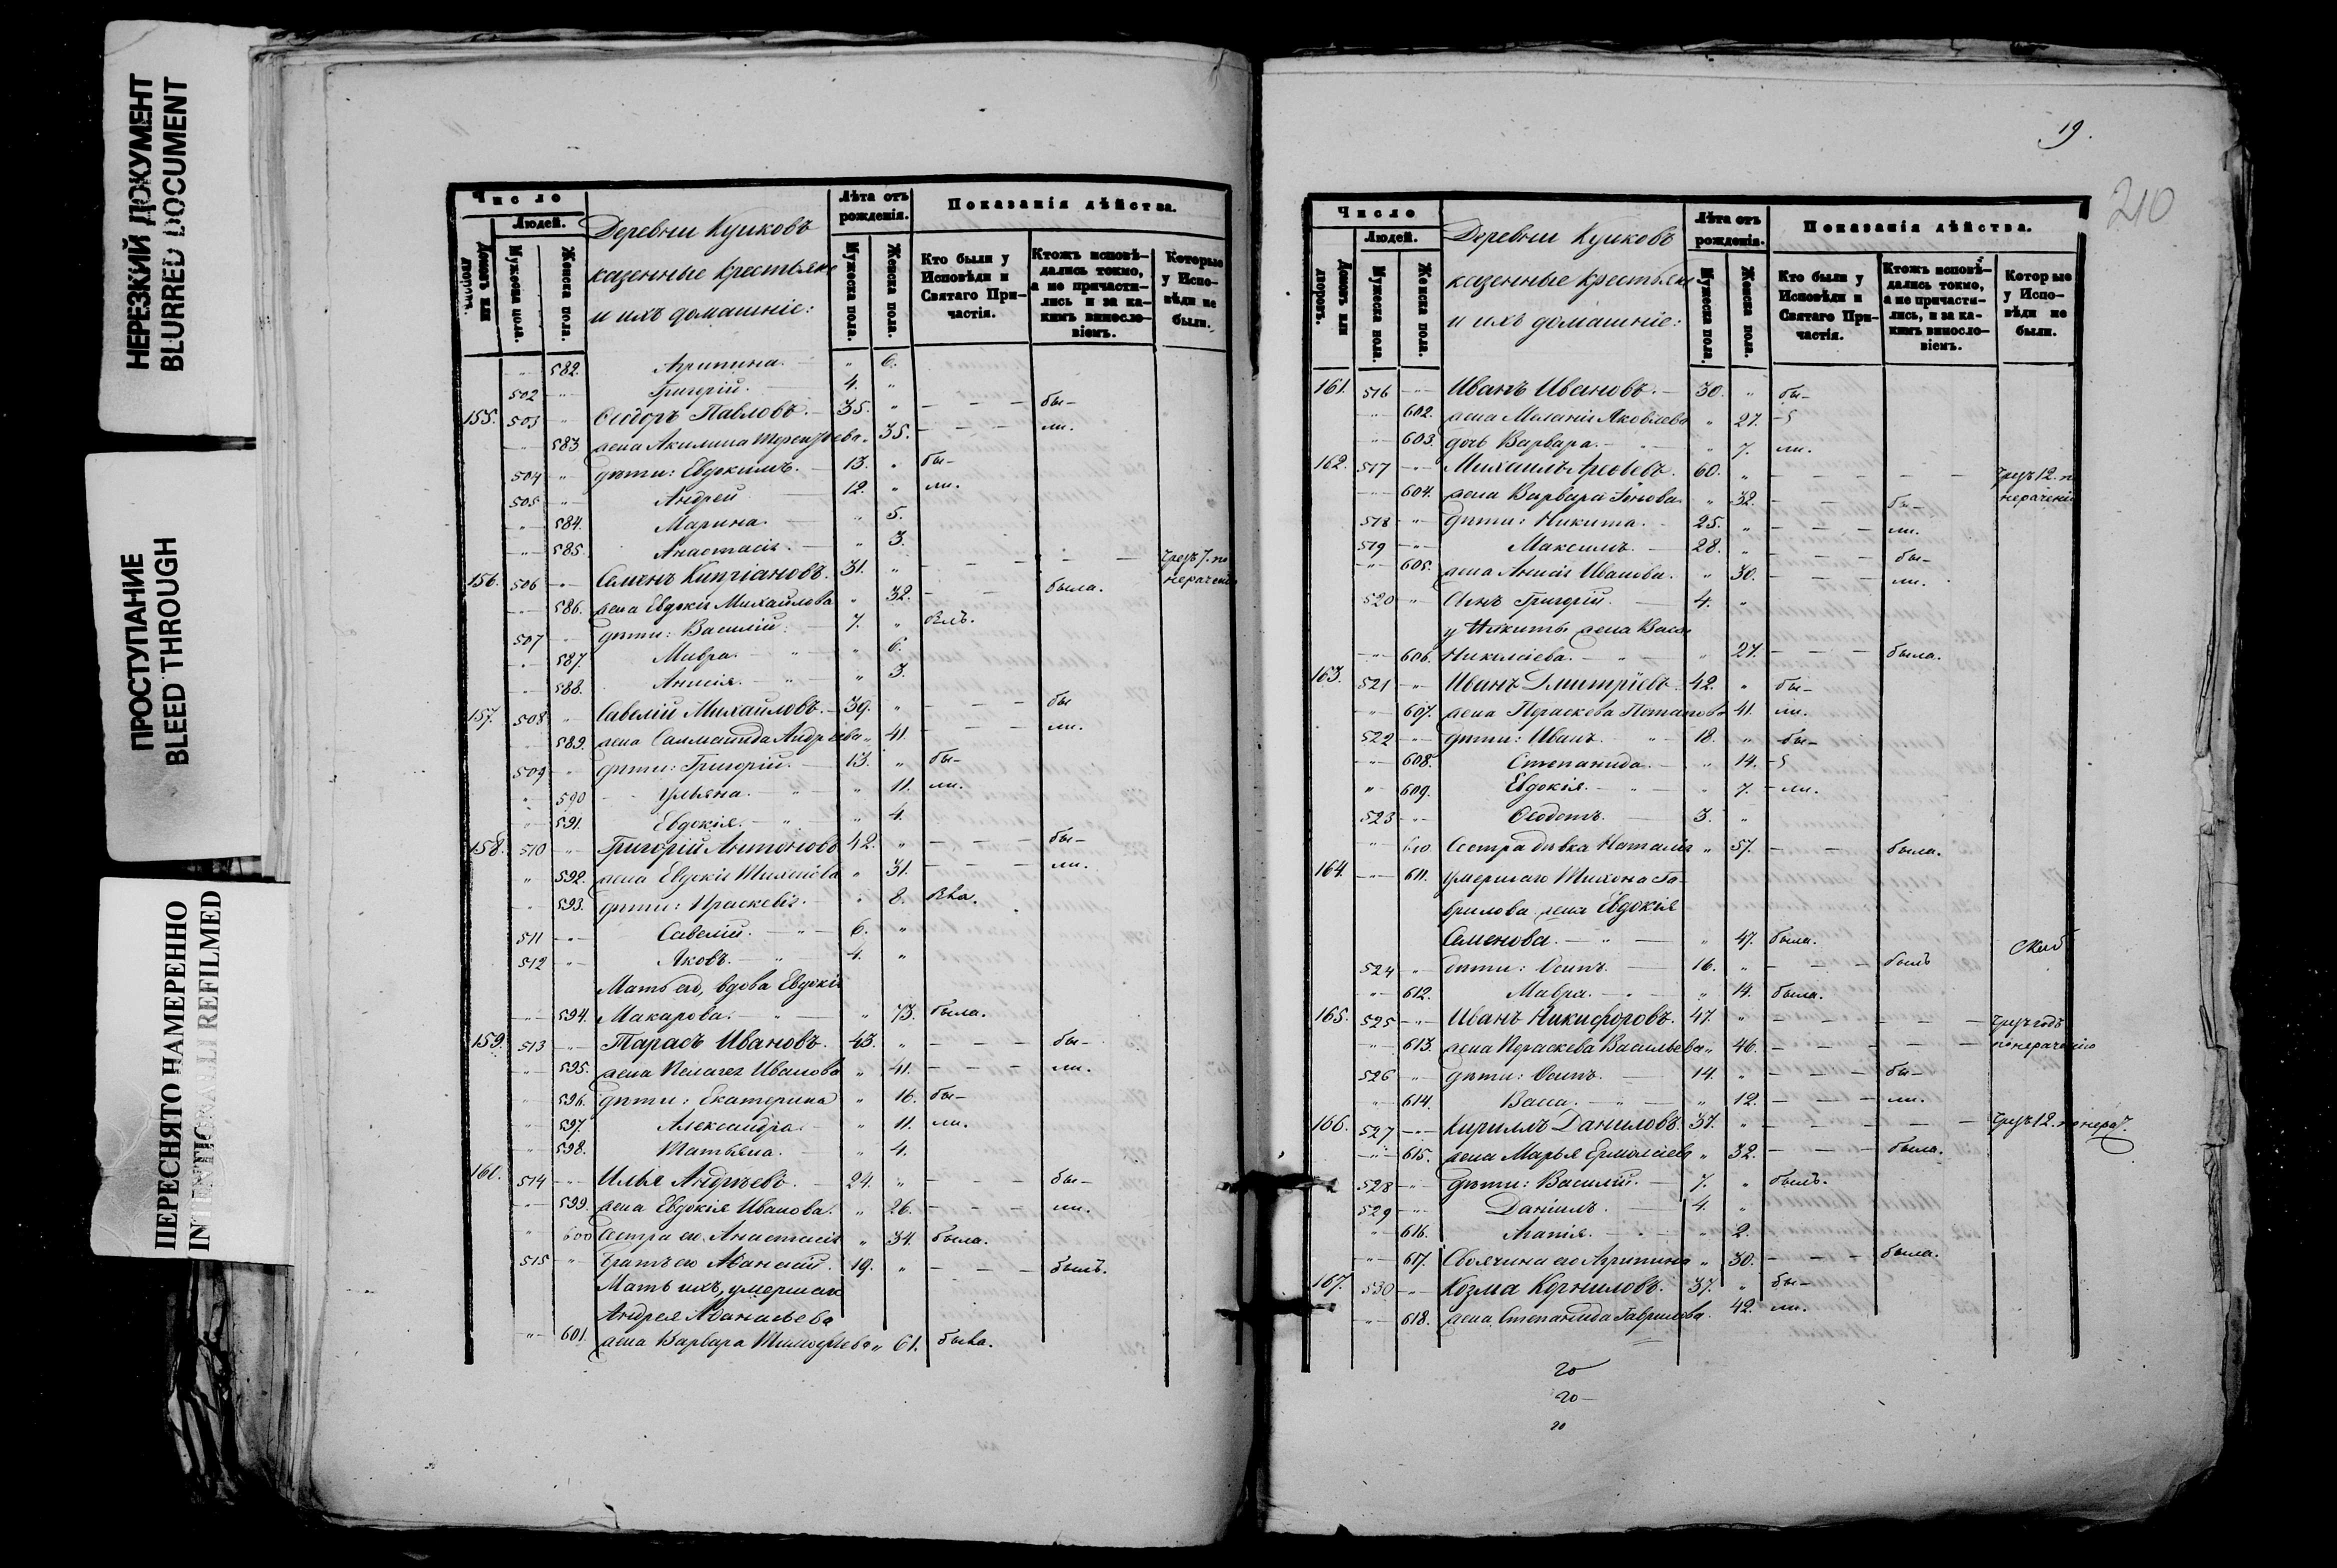 НЕРЕЗКИЙ ДОКУМЕНТ
BLURRED DOCUMENT
ПРОСТУПАНИЕ
BLEED THROUGH
ПЕРЕСНЯТО НАМЕРЕННО
INTENTIONALLY REFILMED
Число
Людей.
Домовъ или дворовъ.
Мужеска пола.
Женска пола.
Деревни Кушковъ
казенные крестьяне
и ихъ домашніе:
Лѣта отъ рожденія.
Мужеска пола.
Женска пола.
Показанія дѣйства.
Кто были у Исповѣди и Святаго Причастія.
Ктожъ исповѣдались токмо, а не причастились и за какимъ винословіемъ.
Которые у Исповѣди не были.
" 582. Агрипина. — " 6.
502 " Григорій. — 4. "
155. 503 " Ѳеодоръ Павловъ. — 35. " — — — бы-
" 583 жена Акилина Терентьева " 35. — — — ли.
504 " дѣти: Евдокимъ. — 13. " бы-
505 " Андрей — 12. " ли.
" 584. Марина. — " 5.
" 585. Анастасія. — " 3.
156. 506 " Семенъ Кипріановъ. 31. " — — — — — чрезъ 7. по
нерачен
" 586. жена Евдокія Михайлова " 32. — — была.
507 " дѣти: Василій. — 7. " былъ.
" 587. Мавра. — " " 6.
" 588. Анисія. — " " 3.
157. 508 " Савелій Михайловъ. — 39. " — — — бы
" 589. жена Саламанида Андреева " 41. — — — ли.
509 " дѣти: Григорій. — 13. " бы-
" 590 Ульяна. — " " 11. ли.
" 591. Евдокія. — " " 4.
158. 510 " Григорій Антоновъ 42. " — — — бы-
" 592. жена Евдокія " 31. — — — ли.
" 593. дѣти: Праскевія. — " 8. была.
511 " Савелій. — " 6. "
512 " Яковъ. — " 4. "
Мать его, вдова Евдокія
" 594. Макарова. — " — " 73. была.
159. 513 " Тарасъ Ивановъ. 43. " — — — бы-
" 595. жена Пелагея Иванова " 41. — — — ли.
" 596. дѣти: Екатерина " 16. бы-
" 597. Александра. — " 11. ли.
" 598. Татьяна. — " 4.
161. 514 " Илья Андреевъ. — 24. " — — — бы-
" 599. жена Евдокія Иванова. " 26. — — — ли.
" 600 Сестра его Анастасія " 34. была.
515 " Братъ его Аѳанасій. 19. " — — — былъ.
Мать ихъ, умершаго
Андрея Аѳанасьева
" 601. жена Варвара Тимоѳеева " 61. была.
19.
210
Число
Людей.
Домовъ или дворовъ.
Мужеска пола.
Женска пола.
Деревни Кушковъ
казенные крестьяне
и ихъ домашніе:
Лѣта отъ рожденія.
Мужеска пола.
Женска пола.
Показанія дѣйства.
Кто были у Исповѣди и Святаго Причастія.
Ктожъ исповѣдались токмо, а не причастились, и за какимъ винословіемъ.
Которые у Исповѣди не были.
161. 516 " Иванъ Ивановъ. — 30. " бы-
" 602. жена Меланія Яковлева " 27.
" 603. дочь Варвара. — " 7. ли.
162. 517 " Михаилъ 60. " — — — — — чрезъ 12. по
" 604. жена Варвара " 32. — — — бы- нераченію
518 " дѣти: Никита. — 25. " — — — ли.
519 " Максимъ. — 28. " — — — бы-
" 605. жена Анисія Иванова. " 30. — — — ли.
520 " Сынъ Григорій. — 4. "
у Никиты жена Васса
" 606. Николаева. — " — " 27. — — — была.
163. 521 " Иванъ Дмитріевъ. 42. " бы-
" 607. жена Пераскева Потапова " 41. ли.
522 " дѣти: Иванъ. " 18. " бы-
" 608. Степанида. — " 14.
" 609. Евдокія. — " " 7. ли.
523 " Ѳеодотъ. — 3. "
" 610 Сестра дѣвка Наталія " 57. — — была.
164. " 611. умершаго Тихона Га-
врилова жена Евдокія
Семенова. — " — " 47. была.
524 " дѣти: Осипъ. — 16. " — — — былъ
" 612. Мавра. — " " 14. была.
165. 525 " Иванъ Никифоровъ. 47. " — — — — — чрезъ годъ
" 613. жена Пераскева Васильева " 46. — — — — — по нераченію
526 " дѣти: Осипъ. — 14. " — — — бы-
" 614. Васса. — " — " 12. — — — ли.
166. 527 " Кириллъ Даниловъ. 37. " — — — — — чрезъ 12. по нерач.
" 615. жена Марья Ермолаева " 32. — — — была.
528 " дѣти: Василій. — 7. " былъ.
529 " Даніилъ. — 4. "
" 616. Агапія. — " — " 2.
" 617. Своячина его Агрипина " 30. — — — была.
167. 530 " Козма Корниловъ. 37. " бы-
" 618. жена Степанида Гаврилова. 42. ли.
20
20
20